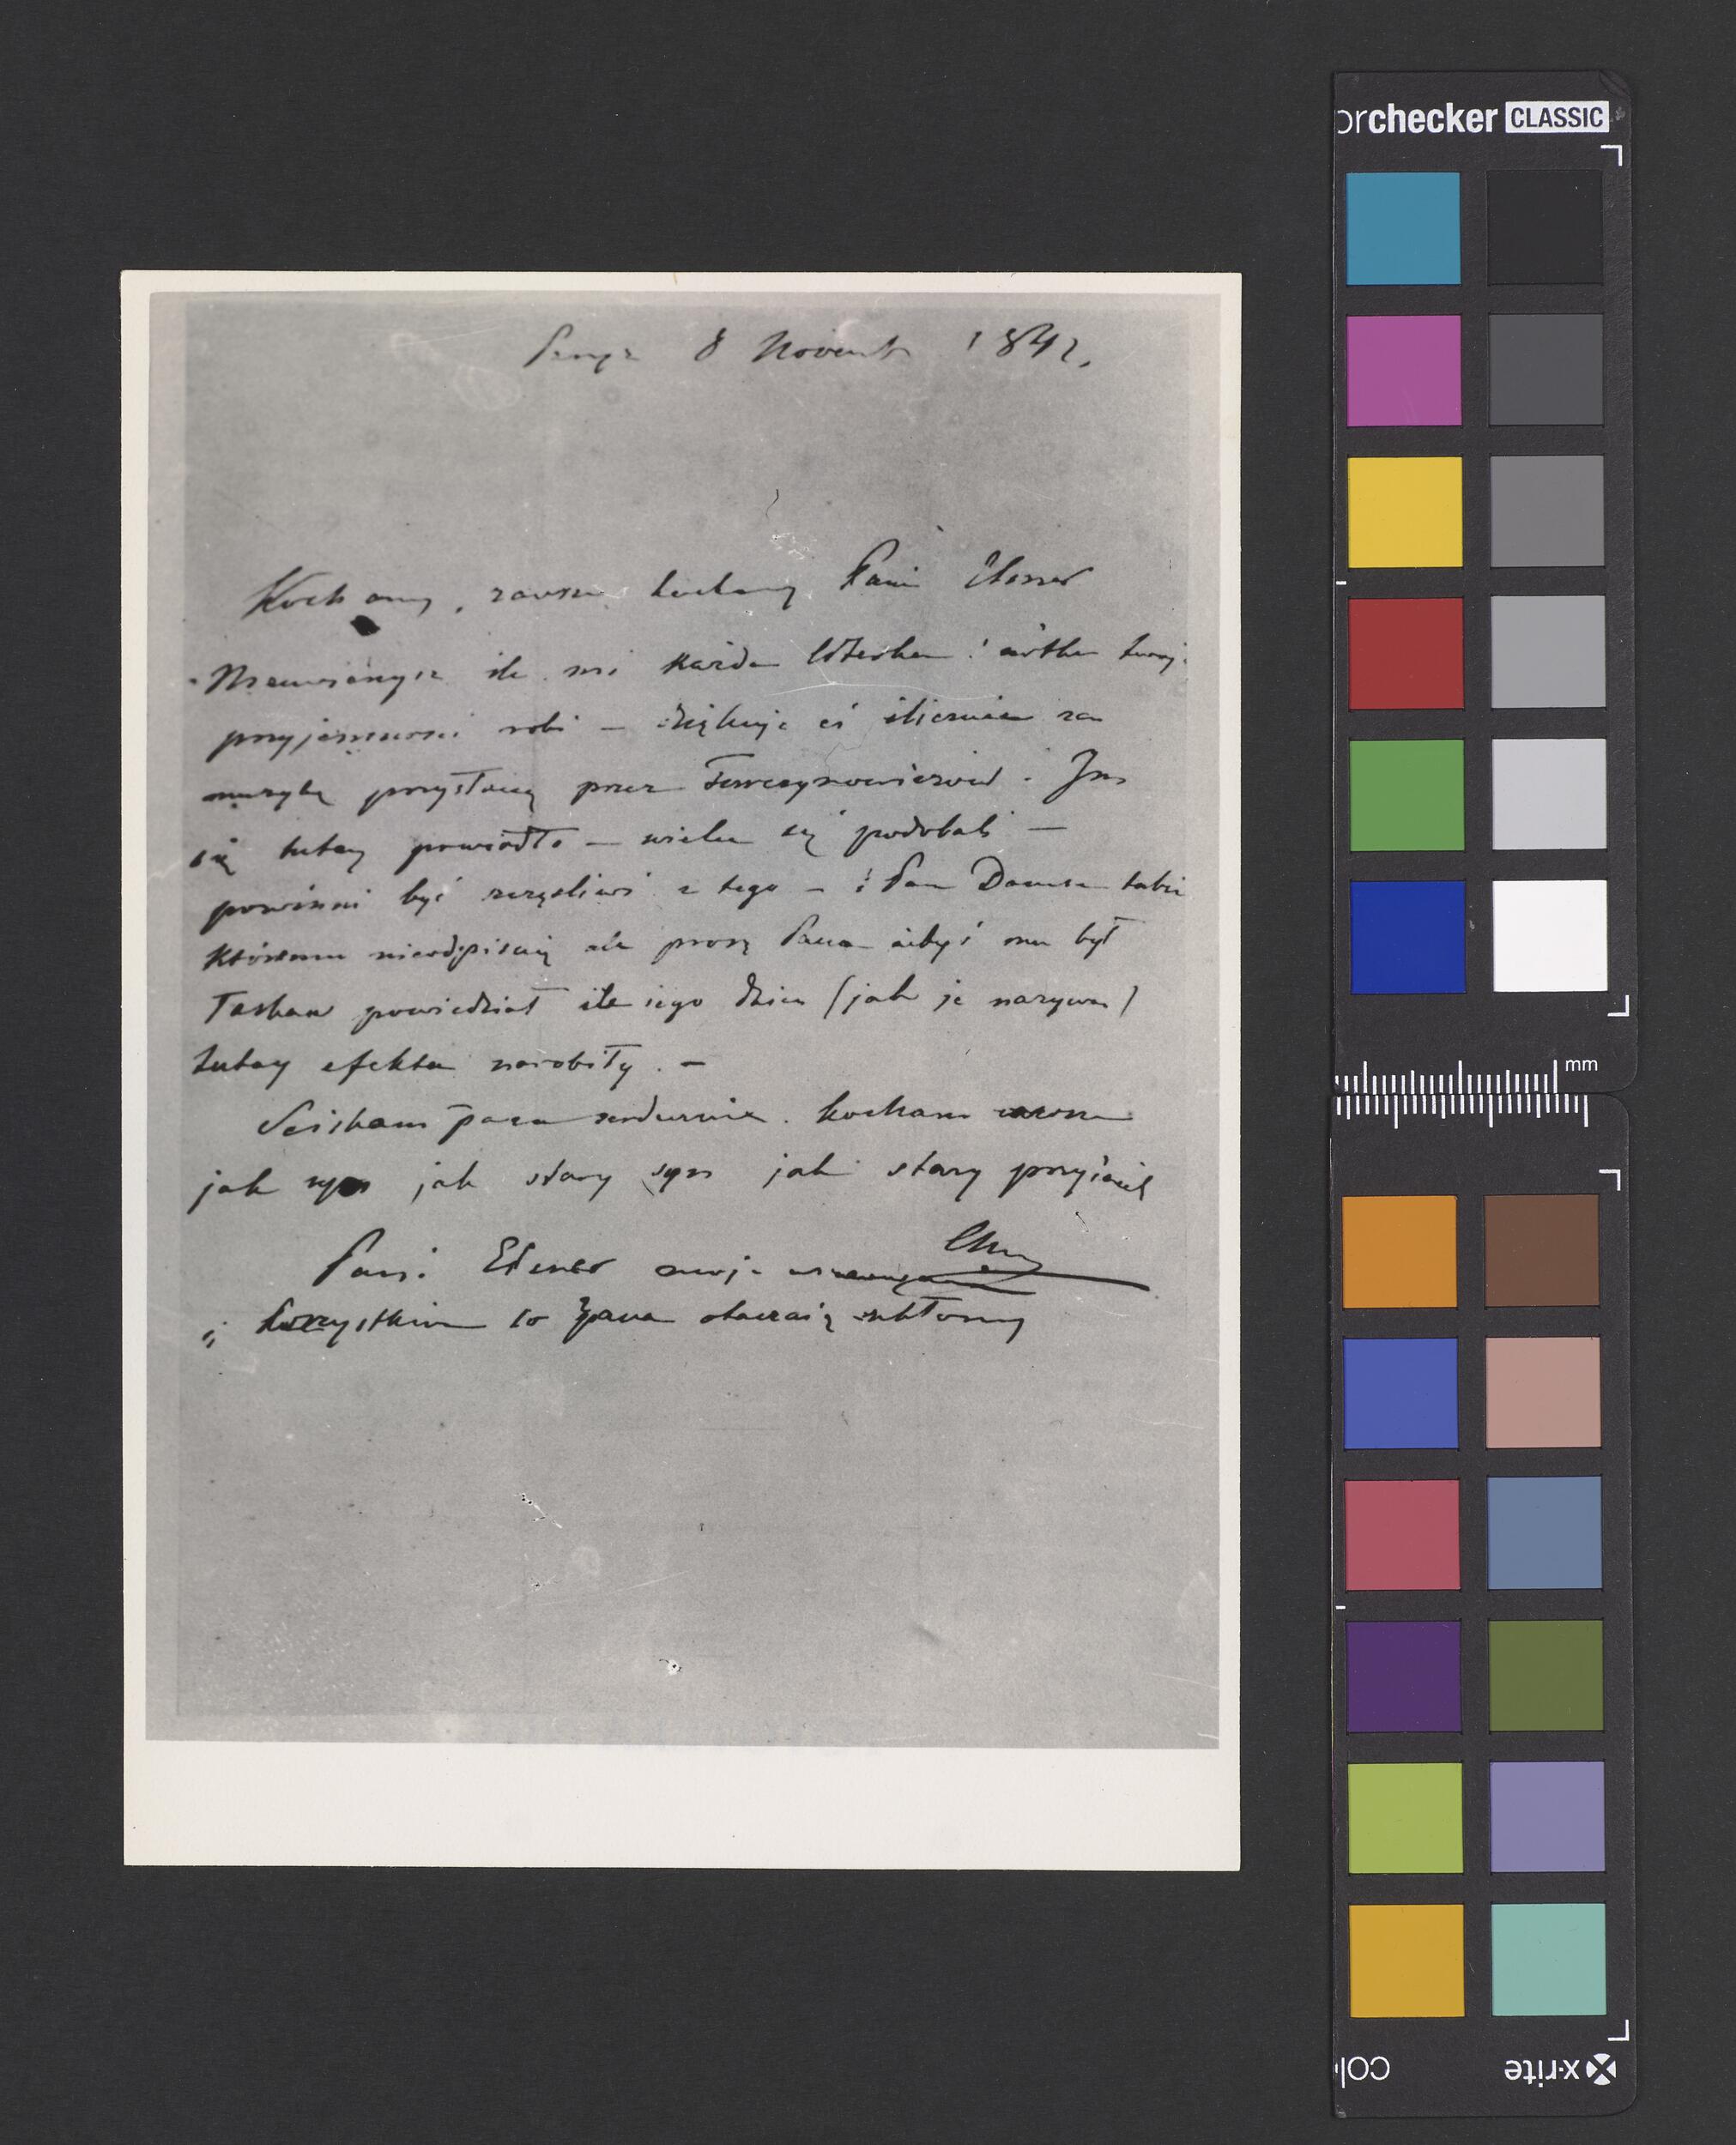 Paryż 8 Novemb 1842.
Kochany, zawsze kochany Panie Elsner
Niewierzysz ile mi każda literka i nótka twoja
przyjemnosci robi – dziękuję ci ślicznie za
muzykę przysłaną przez Turczynowiczów. Im
się tutay powiodło – wielu się podobali –
powinni być szczęśliwi z tego – i Pan Damse także
któremu nieodpisuię ale proszę Pana ażebyś mu był
łaskaw powiedział ile iego dzieci (jak je nazywa)
tutay efektu narobiły. –
Sciskam pana serdecznie. kocham zawsze
jak syn jak stary syn jak stary przyiaciel
Ch
Pani Elsner moje
i wszystkim co pana otaczaią ukłony
orchecker CLASSIC
mm
x-rite
colo